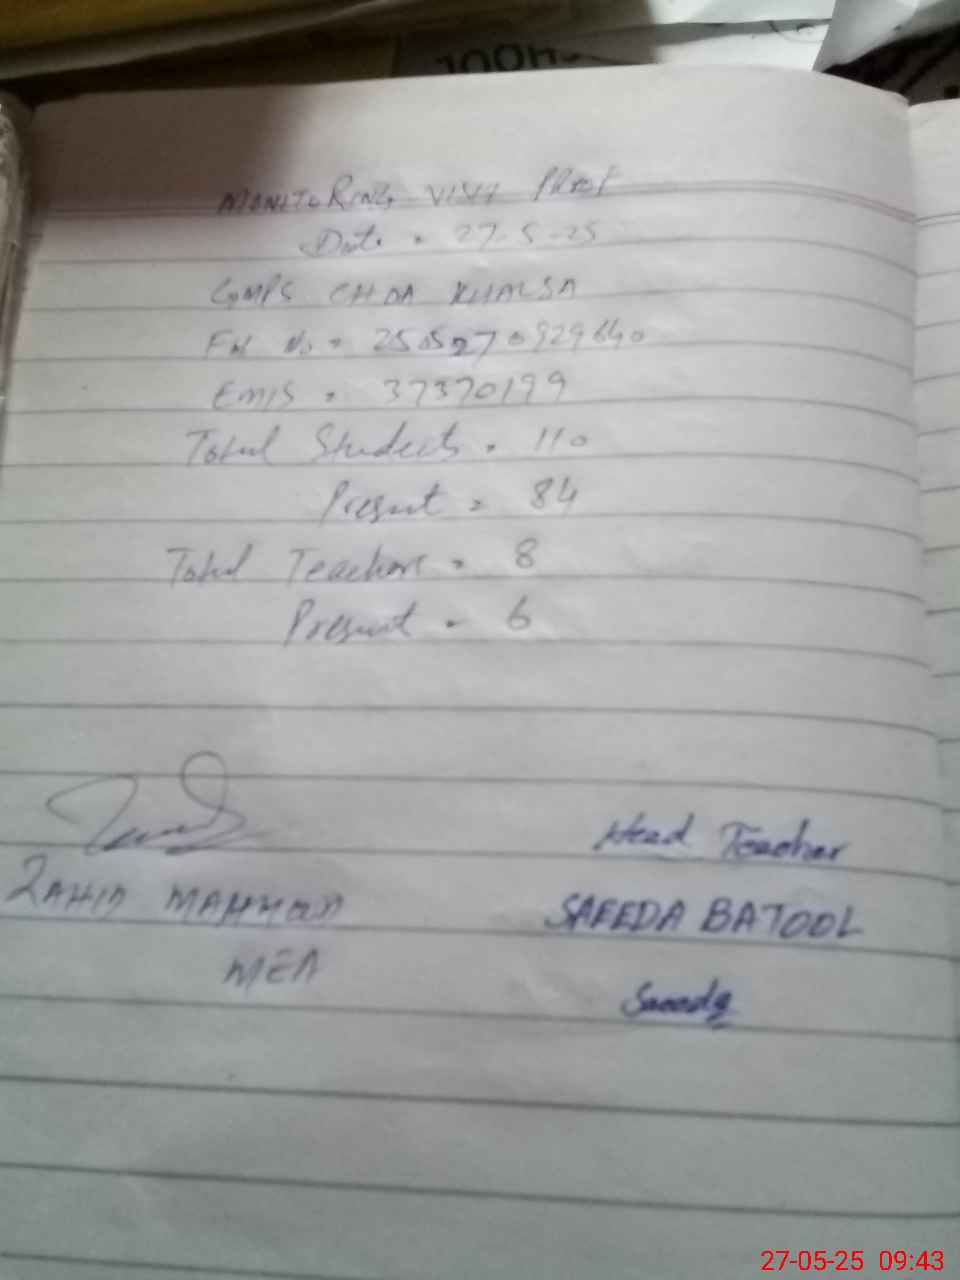 100
MONITORING VISIT PROOF
Date = 27-5-25
GMPS CHOA KHALSA
No = 2505270929640
EMIS = 37370199
Total Students = 110
Present = 84
Total Teachers = 8
Present = 6
Head Teacher
ZAHID MAHMOOD
SAEEDA BATOOL
MEA
Saeeda
27-05-25 09:43